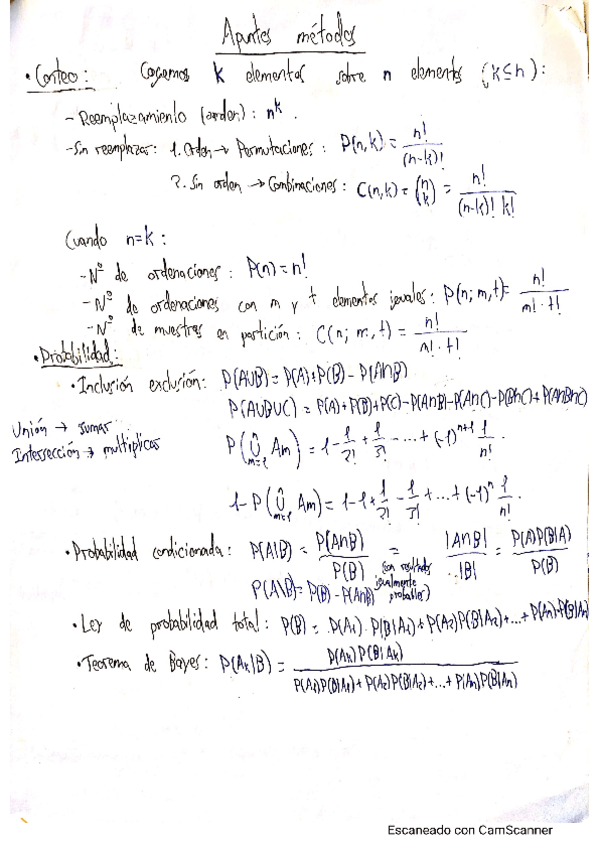 Apuntes métodos
• Conteo: Cogemos k elementos sobre n elements (k≤n):
- Reemplazamiento (orden): n^k.
- Sin reemplazar: 1. Orden → Permutaciones: P(n,k) = n!/(n-k)!
2. Sin orden → Combinaciones: C(n,k) = (n k) = n!/((n-k)! k!)
Cuando n=k:
- Nº de ordenaciones: P(n) = n!
- Nº de ordenaciones con m y t elementos iguales: P(n; m,t) = n!/(m!·t!)
- Nº de muestras en partición: C(n; m, t) = n!/(m!·t!)
• Probabilidad:
• Inclusión exclusión: P(A∪B) = P(A)+P(B) - P(A∩B)
P(A∪B∪C) = P(A)+P(B)+P(C)-P(A∩B)-P(A∩C)-P(B∩C)+P(A∩B∩C)
Unión → sumar
Intersección → multiplicar
P(∪ m=1 n Am) = 1 - 1/2! + 1/3! - ... + (-1)^(n+1) 1/n!
1-P(∪ m=1 n Am) = 1-1+1/2! - 1/3! + ... + (-1)^n 1/n!.
• Probabilidad condicionada: P(A|B) = P(A∩B)/P(B) = |A∩B|/|B| = P(A)P(B|A)/P(B)
(son resultados igualmente probables)
P(A\B) = P(B) - P(A∩B)
• Ley de probabilidad total: P(B) = P(A1)·P(B|A1)+P(A2)P(B|A2)+...+P(An)·P(B|An)
• Teorema de Bayes: P(Ak|B) = P(Ak)P(B|Ak)/(P(A1)P(B|A1)+P(A2)P(B|A2)+...+P(An)P(B|An))
Escaneado con CamScanner